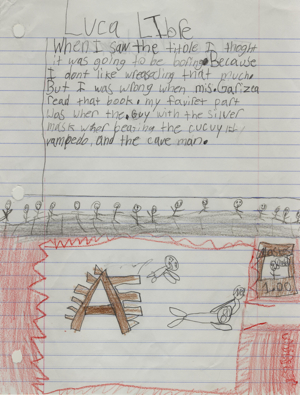 Luca LIbre
When I saw the titole I thoght
it was going to be boring. Because
I dont like wreasaling that much.
But I was wrong when mis. Garzea
read that book. my faviret part
was when the guy with the silver
mask wher beating the cucuy
vampedo, and the cave man.
A
1.00